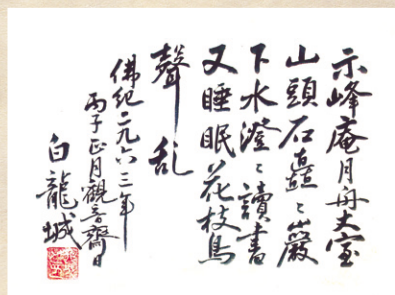 示峰庵月舟大宝
山頭石矗〻巖
下水澄〻讀書
又睡眠花枝鳥
聲乱
佛紀二九六三年
丙子正月觀音齋日
白龍城